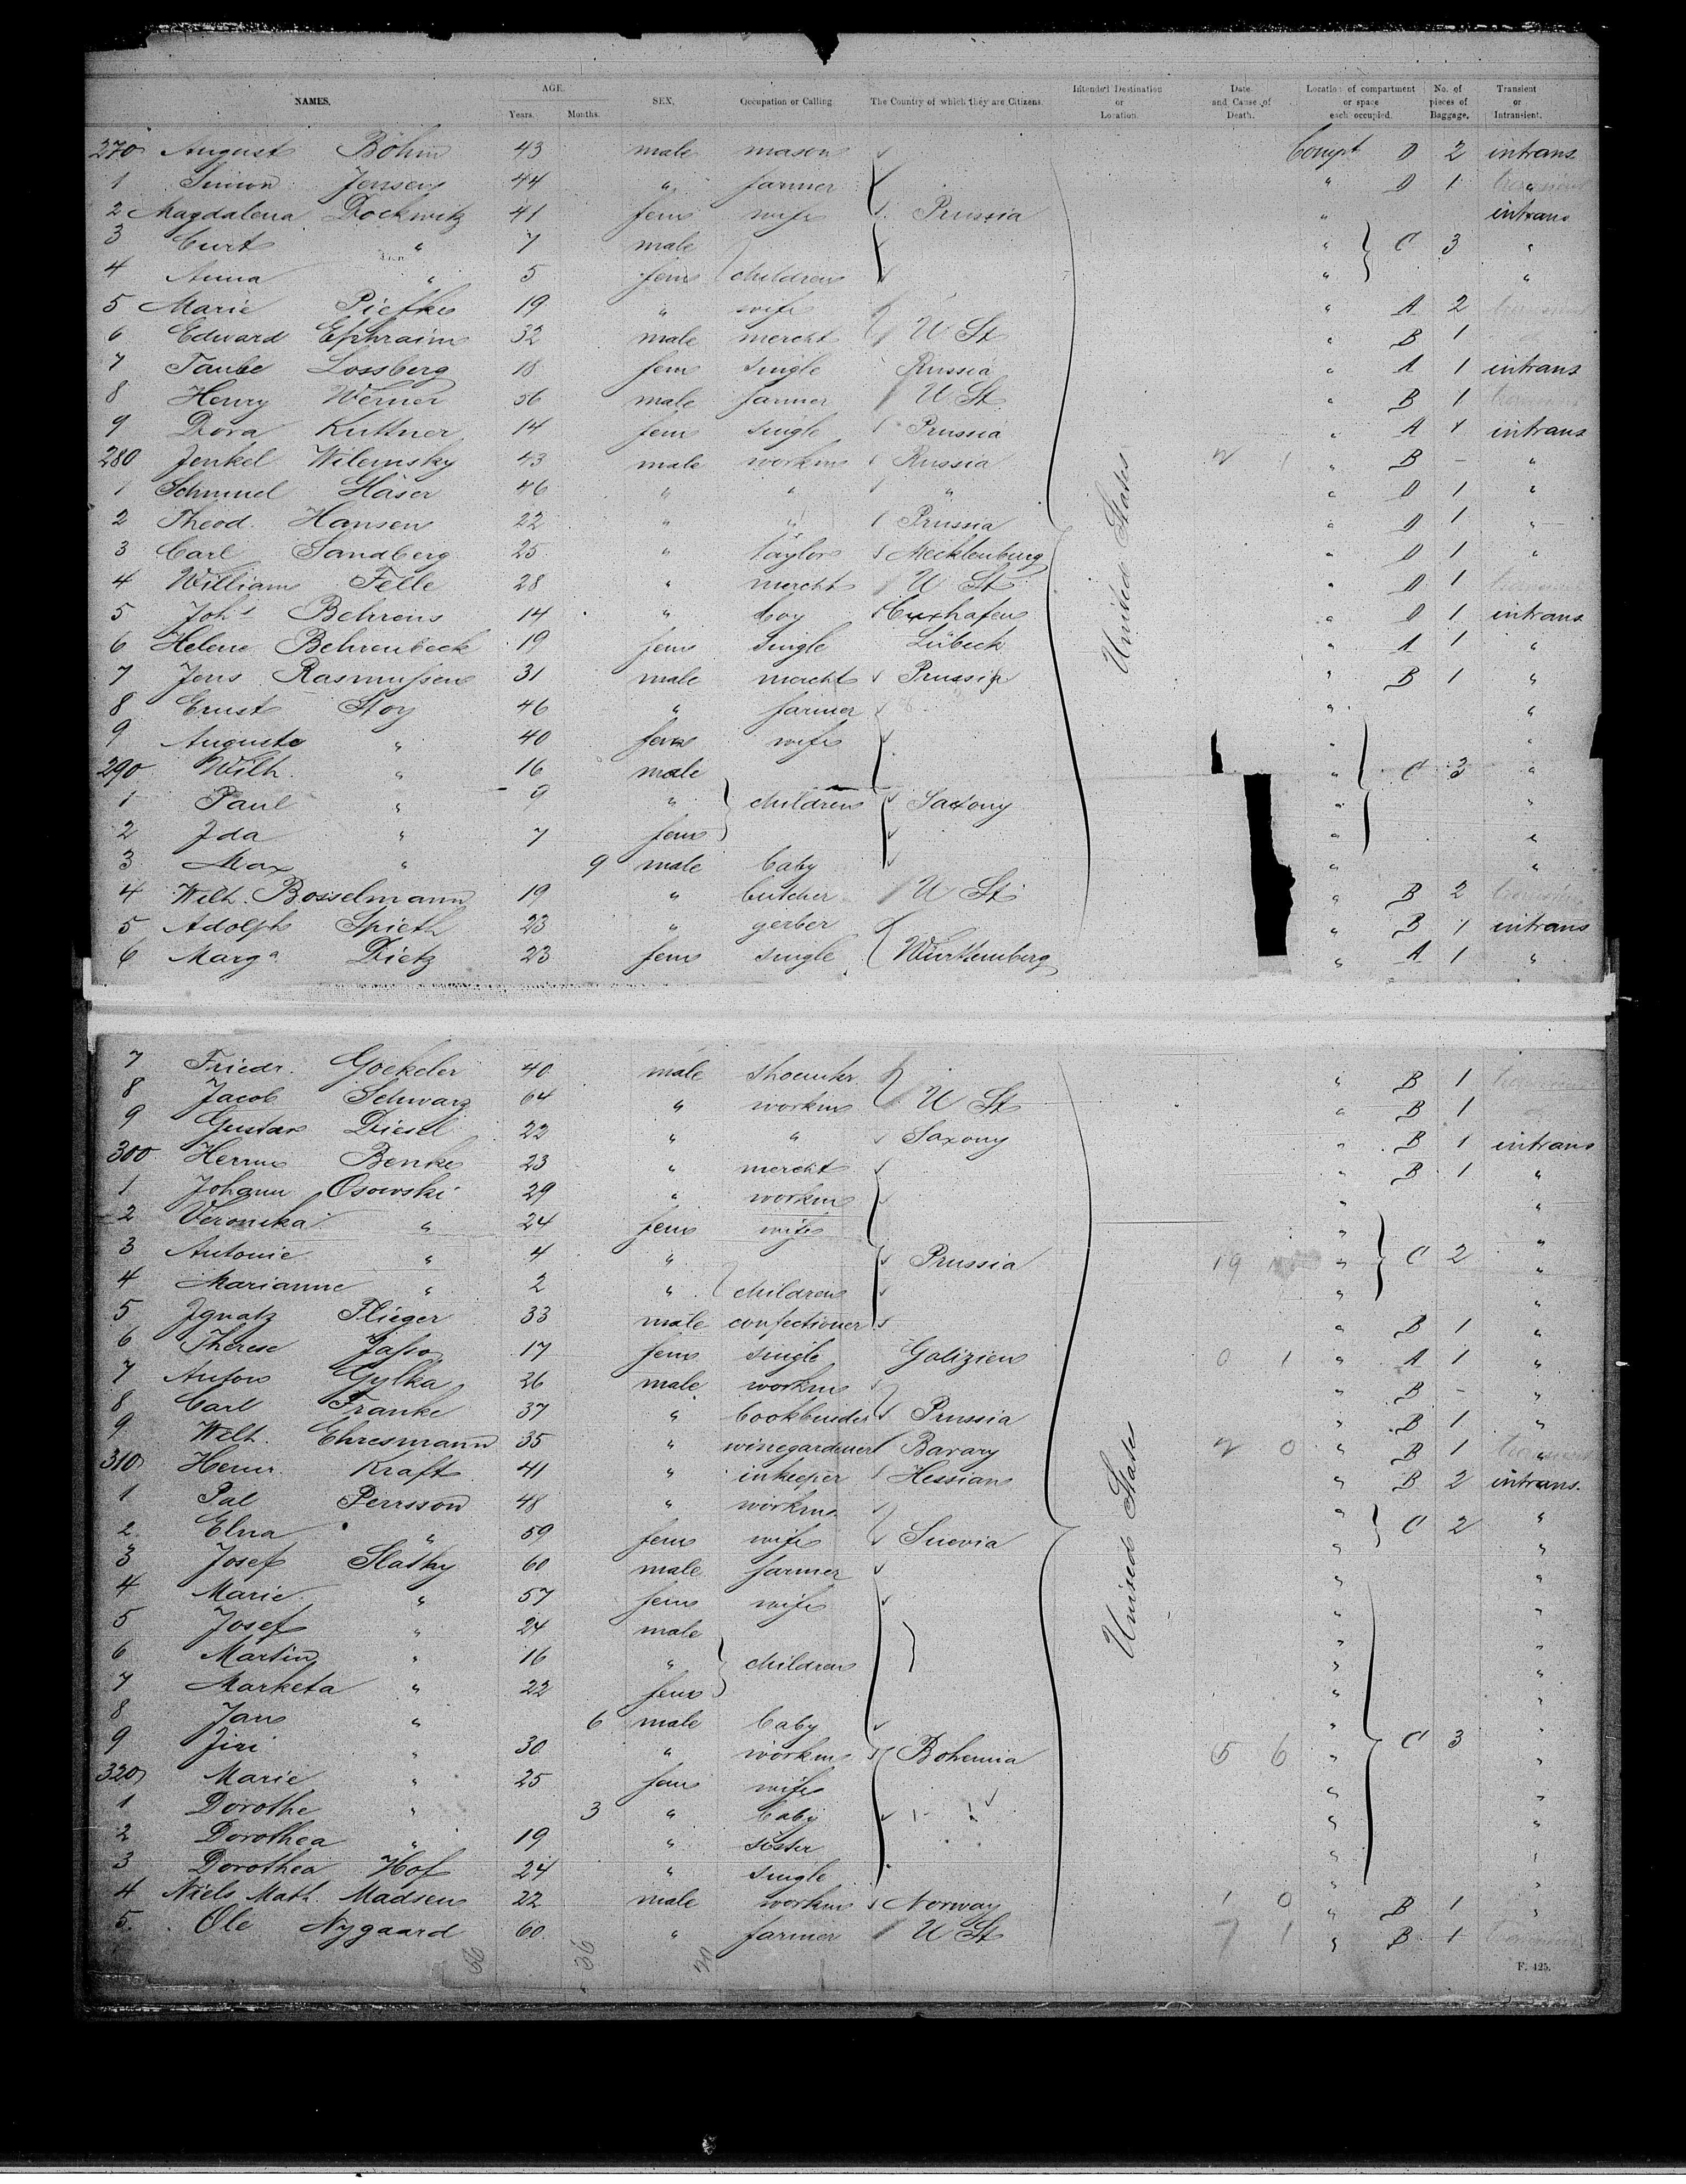 NAMES. AGE. Years. Months. SEX. Occupation or Calling. The Country of which they are Citizens. Intended Destination or Location. Date and Cause of Death. Location of compartment or space each occupied. No. of pieces of Baggage. Transient or Intransient.
270 August Böhm 43 male mason Compt D 2 intrans
1 Simon Jensen 44 " farmer " D 1 "
2 Magdalena Dockwitz 41 fem wife Prussia " intrans
3 Curt " 7 male " C 3 "
4 Anna " 5 fem children " "
5 Marie Piefke 19 " wife " A 2
6 Edward Ephraim 32 male mercht U St " B 1
7 Taube Lossberg 18 fem single Russia " A 1 intrans
8 Henry Werner 56 male farmer U St " B 1
9 Dora Kuttner 14 fem single Prussia " A 1 intrans
280 Jenkel Wilemsky 43 male workm Russia " B - "
1 Schmuel Gläser 46 " " " " D 1 "
2 Theod. Hansen 22 " " Prussia " D 1 "
3 Carl Sandberg 25 " taylor Mecklenburg " D 1 "
4 William Felle 28 " mercht U St " D 1
5 Johs Behrens 14 " boy Cuxhafen " D 1 intrans
6 Helene Behrenbeck 19 fem single Lübeck " A 1 "
7 Jens Rasmussen 31 male mercht Prussia " B 1 "
8 Ernst Stoy 46 " farmer " "
9 Auguste " 40 fem wife " "
290 Wilh. " 16 male " C 3 "
1 Paul " 9 " children Saxony " "
2 Ida " 7 fem " "
3 Max " 9 male baby " "
4 Wilh. Bosselmann 19 " butcher U St " B 2
5 Adolph Spieth 23 " gerber " B 1 intrans
6 Marga Dietz 23 fem single Württemberg " A 1 "
United States
7 Friedr. Goekeler 40 male shoemkr " B 1
8 Jacob Schwarz 64 " workm U St " B 1
9 Gustav Diesel 22 " " Saxony " B 1 intrans
300 Herm Benke 23 " mercht " B 1 "
1 Johann Osowski 29 " workm " "
2 Veronika " 24 fem wife " "
3 Antonie " 4 " Prussia 19 " C 2 "
4 Marianne " 2 " children " "
5 Ignatz Flieger 33 male confectioner " B 1 "
6 Therese 17 fem single Galizien 0 1 " A 1 "
7 Anton Gylka 26 male workm " B - "
8 Carl Franke 37 " bookbinder Prussia " B 1 "
9 Wilh. Ehresmann 35 " winegardener Bavary 2 0 " B 1
310 Herm. Kraft 41 " inkeeper Hessian " B 2 intrans.
1 Pal Perrsson 48 " workm " "
2 Elna " 59 fem wife Suevia " C 2 "
3 Josef Slatky 60 male farmer " "
4 Marie " 57 fem wife " "
5 Josef " 24 male " "
6 Martin " 16 " children " "
7 Marketa " 22 fem " "
8 Jan " 6 male baby " "
9 Jiri " 30 " workm Bohemia 5 6 " C 3 "
320 Marie " 25 fem wife " "
1 Dorothe " 3 " baby " "
2 Dorothea " 19 " sister " "
3 Dorothea Hof 24 " single " "
4 Niels Math. Madsen 22 male workm Norway 1 0 " B 1 "
5. Ole Nygaard 60 " farmer U St 7 1 " B 1
United States
F. 425.